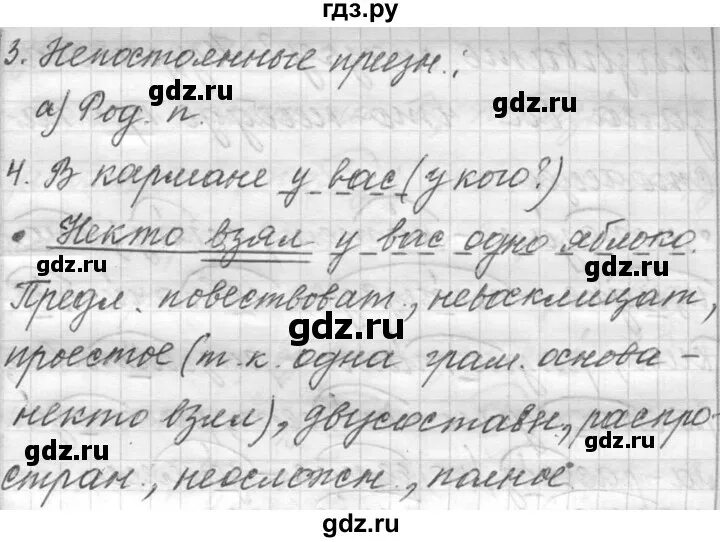 гдз.ру
3. Непостоянные призн.:
gdz.ru
gdz.ru
а) Род. п.
4. В кармане у вас (у кого?)
• Некто взял у вас одно яблоко.
gdz.ru
gdz.ru
Предл. повествоват., невосклицат.,
gdz.ru
простое (т. к. одна грам. основа –
некто взял), двусоставн., распро-
gdz.ru
gdz.ru
стран., неосложн., полное
gdz.ru